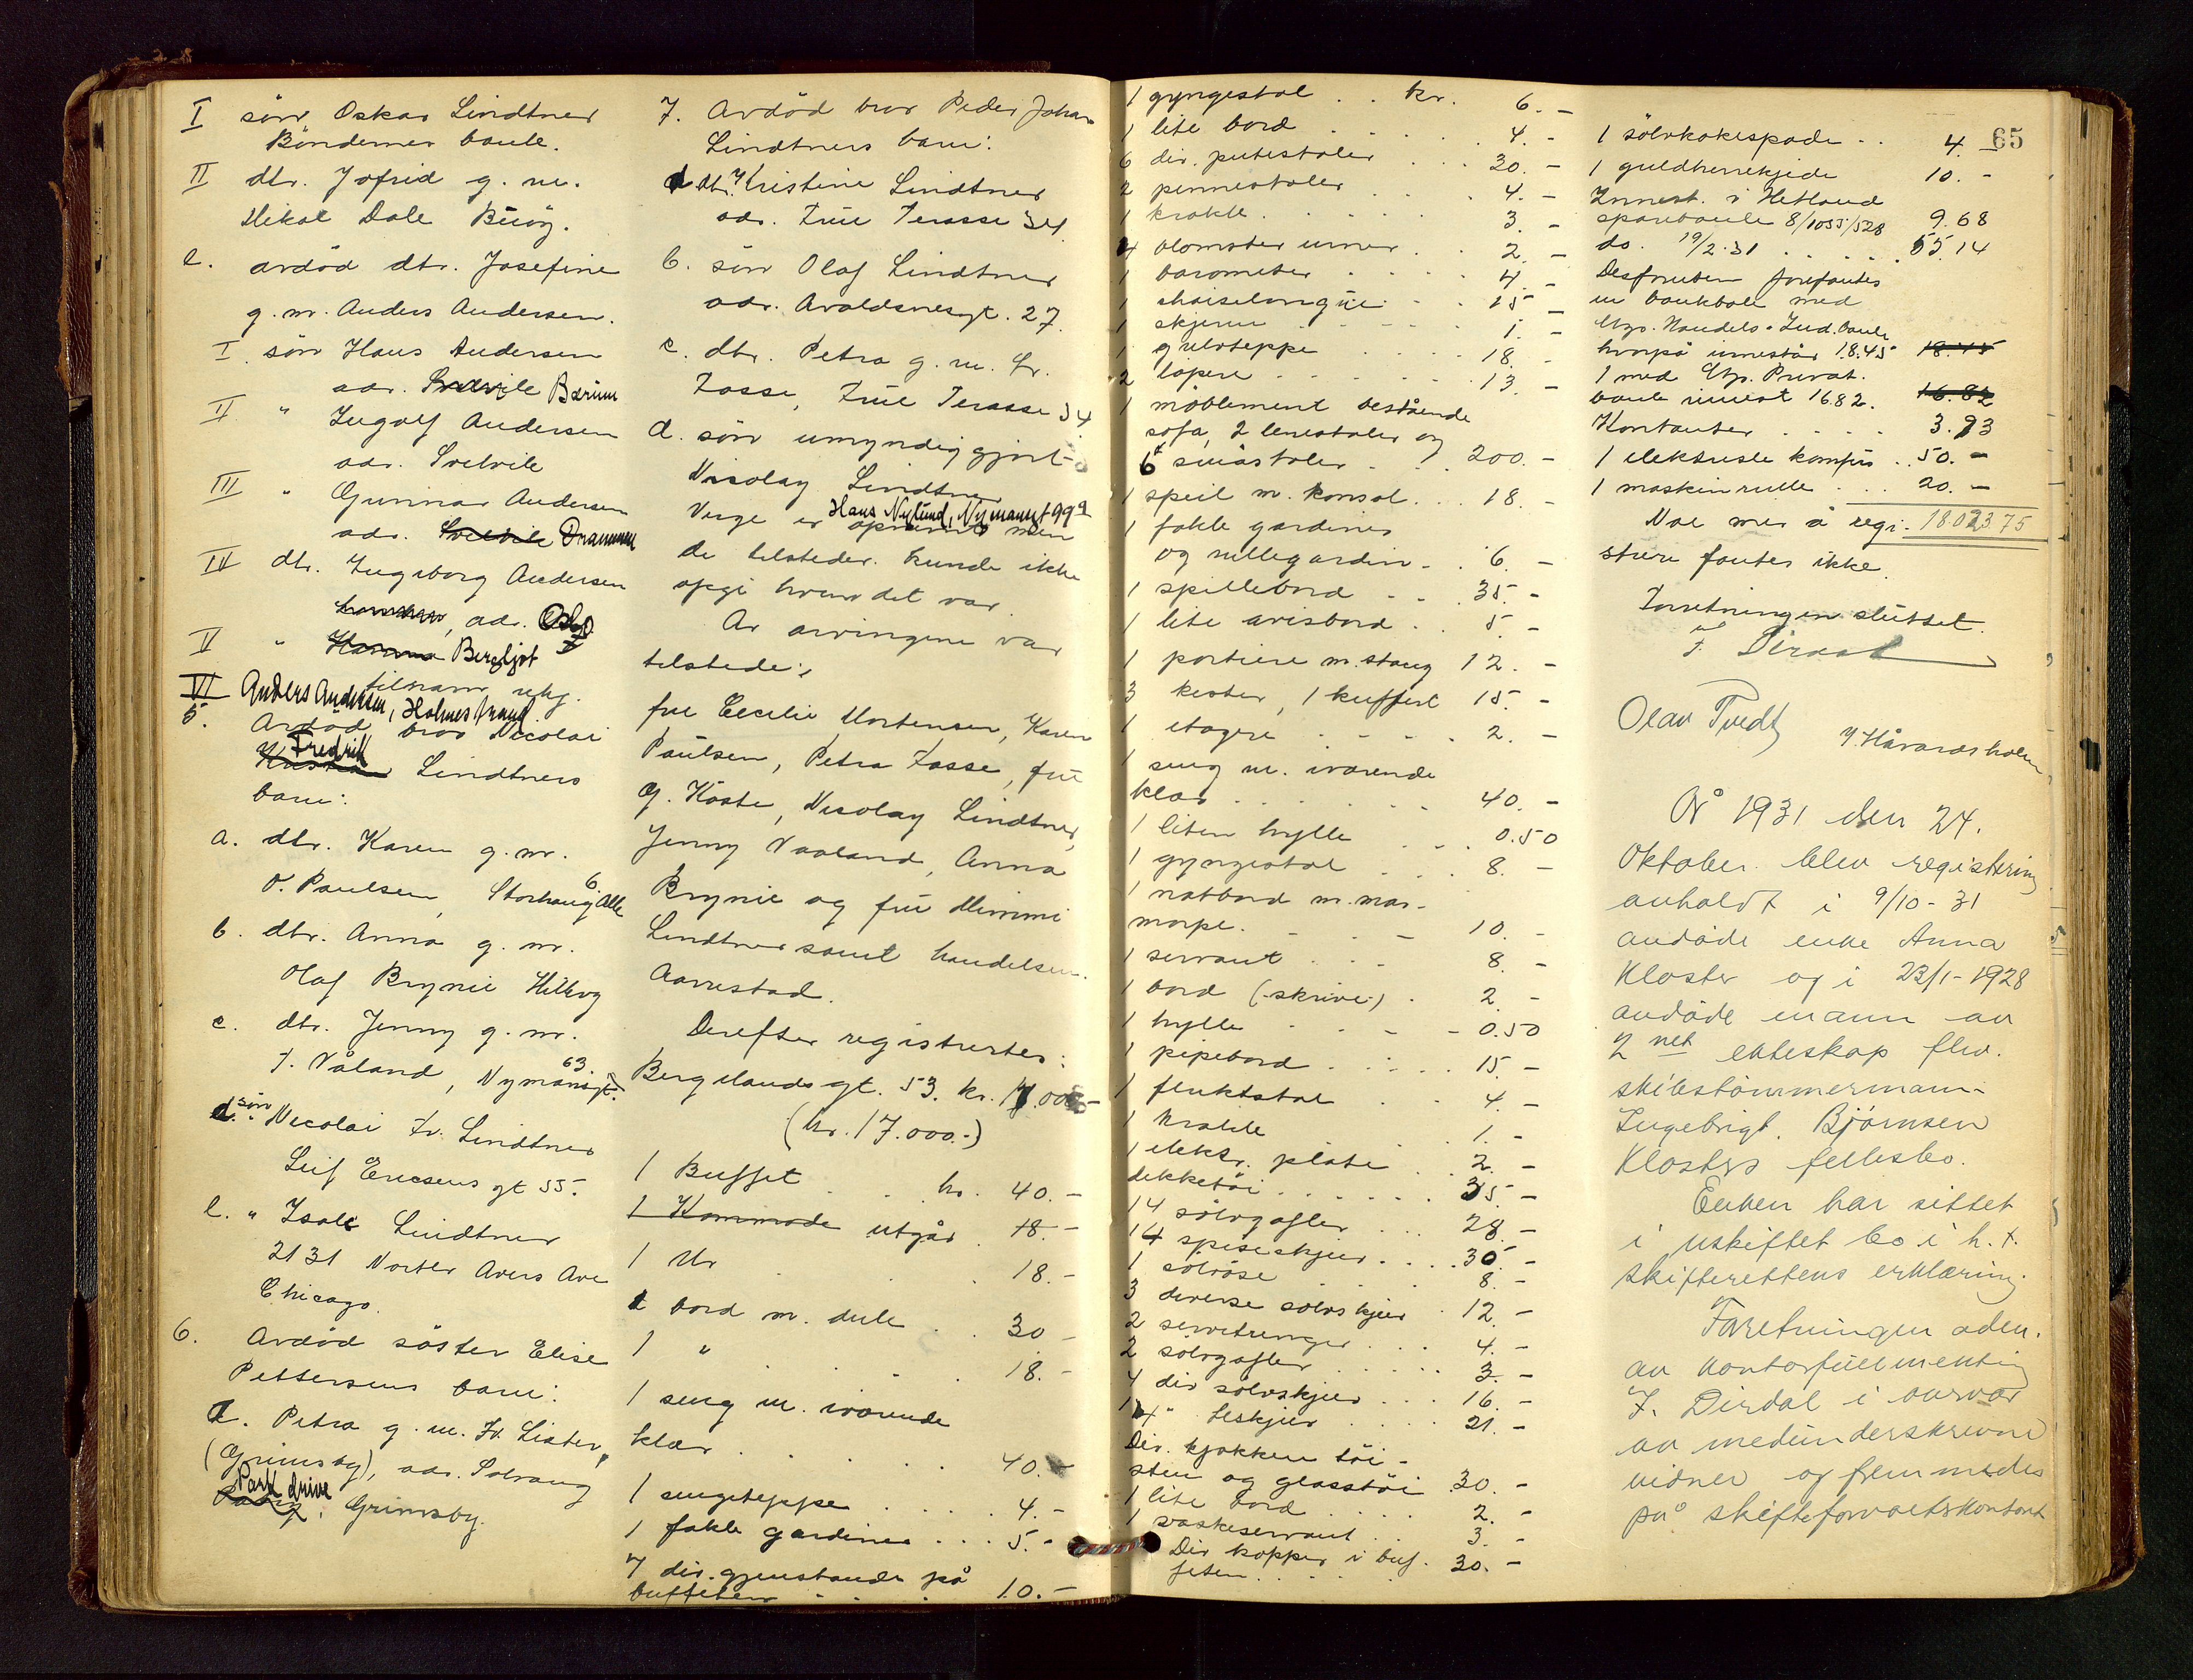 I sön Oskar Lindtner
Böndernes bank.
II dtr. Jofrid g. m.
Mikal Dale Buöy.
e. avdöd dtr. Josefine
g. m. Anders Andersen.
I. sön Hans Andersen
adr. Svelvik Bærum
II " Ingolf Andersen
adr. Svelvik
III " Gunnar Andersen
adr. Svelvik Drammen
IV dtr. Ingeborg Andersen
adr. Oslo
V " Hanna Bergljot
tilnavn ukj.
VI Anders Andersen, Holmestrand.
5. Avdöd bror Nicolai
Fredrik
Kristian Lindtners
barn:
a. dtr. Karen g. m.
O. Paulsen, Storhaug Alle 6.
b. dtr. Anna g. m.
Olaf Brynie Hillevg
c. dtr. Jenny g. m.
T. Våland, Nymansgt. 63
d. sön Nicolai Fr. Lindtner
Leif Ericsens gt 55.
e. " Isak Lindtner
2131 North Avers Ave
Chicago.
6. Avdöd söster Elise
Pettersens barn:
a. Petra g. m. Fr. Lister,
(Grimsby), adr. Solvang
Park drive
Grimsby.
7. Avdöd bror Peder Johan
Lindtners barn:
a dtr. Kristine Lindtner
adr. Frue Terasse 34.
b. sön Olaf Lindtner
adr. Avaldsnesgt. 27
c. dtr. Petra g. m. Fr.
Fosse, Frue Terasse 34
d. sön umyndiggjort
Nicolay Lindtner
Hans Nylund, Nymansgt 99a
Verge er opnevnt men
de tilstedev. kunde ikke
opgi hvem det var.
Av arvingene var
tilstede:
frue Cecilie Mortensen, Karen
Paulsen, Petra Fosse, frue
G. Köste, Nicolay Lindtner,
Jenny Vaaland, Anna
Brynie og frue Mimmi
Lindtner samt handelsm.
Aarrestad.
Derefter registrertes:
Bergelandsgt. 53. kr. 17.000.-
(kr. 17.000.-)
1 Buffet . . kr. 40.-
1 Kommode utgår . 18.-
1 Ur . . 18.-
1 bord m. duk . . 30 -
1 " . . . 18.-
1 seng m. ivärende
klær . . . . 40.-
1 sengeteppe . . . . 4.-
1 fakk gardiner . . . 5.-
7 div. gjenstande på
buffeten . . . 10.-
1 gyngestol . . kr. 6.-
1 lite bord . . . . 4.-
6 div. putestoler . . . 30.-
2 pinnestoler . . . 4.-
1 krakk . . . . . 3.-
4 blomster urner . . 2.-
1 barometer . . . . 4.-
1 shaiselongue . . 15 -
1 skjerm . . . . . 1.-
1 gulvteppe . . . . 18.-
2 löpere . . . . . 13.-
1 möblement bestående
sofa, 2 lenestoler og
6 småstoler . . . 200.-
1 speil m. konsol . . . 18.-
1 fakk gardiner
og rullegardin . . 6.-
1 spillebord . . . 35.-
1 lite avisbord . . 5.-
1 portiere m. stang 12.-
3 kister, 1 kuffert 15.-
1 etagere . . . . 2.-
1 seng m. ivärende
klær . . . . . . 40.-
1 liten hylle . . . 0.50
1 gyngestol . . . 8.-
1 natbord m. mar-
morpl. . . . 10.-
1 servant . . . 8.-
1 bord (skrive-) . 2.-
1 hylle . . . . 0.50
1 pipebord . . . . 15.-
1 fluktstol . . 4.-
1 krakk . . 1.-
1 elektr. plate . . 2.-
dekketöi . . . . . . 35 -
14 sölvgafler . . . 28.-
14 spiseskjeer . . . . 30.-
1 sölvöse . . . . 8.-
3 diverse sölvskjeer . 12.-
2 servietringer . . . 4.-
2 sölvgafler . . . . . 3.-
4 div sölvskjeer . . . 16.-
14 " teskjeer . . . . 21.-
Div. kjøkken töi-
sten og glasstöi 30.-
1 lite bord . . . . 2.-
1 vaskeservant . . 3.-
Div kopper i buf-
feten . . . . 30.-
65
1 sölvkakespade . . 4.-
1 guldherrekjede 10.-
Innest. i Hetland
sparebank 8/1055/528 9.68
do. 19/2.31 . . . . . 55.14
Desforuten forefantes
en bankbok med
Stvg. Handels & Ind. bank
hvorpå innestår 18.45 18.45
1 med Stvg. Privat.
bank innest 16.82. 16.82
Kontanter . . . . 3.93
1 elektriske komfyr . . 50.-
1 maskinrulle . . . 20.-
Noe mer å regi- 18.023.75
strere fantes ikke.
Forretningen sluttet.
F. Dirdal
Olav Tvedt
Y. Håvardsholm
År 1931 den 24.
Oktober. blev registrering
avholdt i 9/10-31
avdöde enke Anna
Kloster og i 23/1-1928
avdöde mann av
2net ekteskap fhv.
skibstömmermann
Ingebrigt Bjørnsen
Klosters fellesbo.
Enken har sittet
i uskiftet bo i h. t.
skifterettens erklæring.
Forretningen adm.
av kontorfullmektig
F. Dirdal i overvær
av medunderskrevne
vidner og fremmedes
på skifteforvalterkontoret